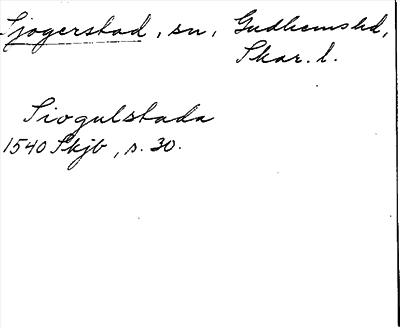 Sjogerstad, sn, Gudhemshd,
Skar. l.
Siogulstada
1540 Skjb, s. 30.